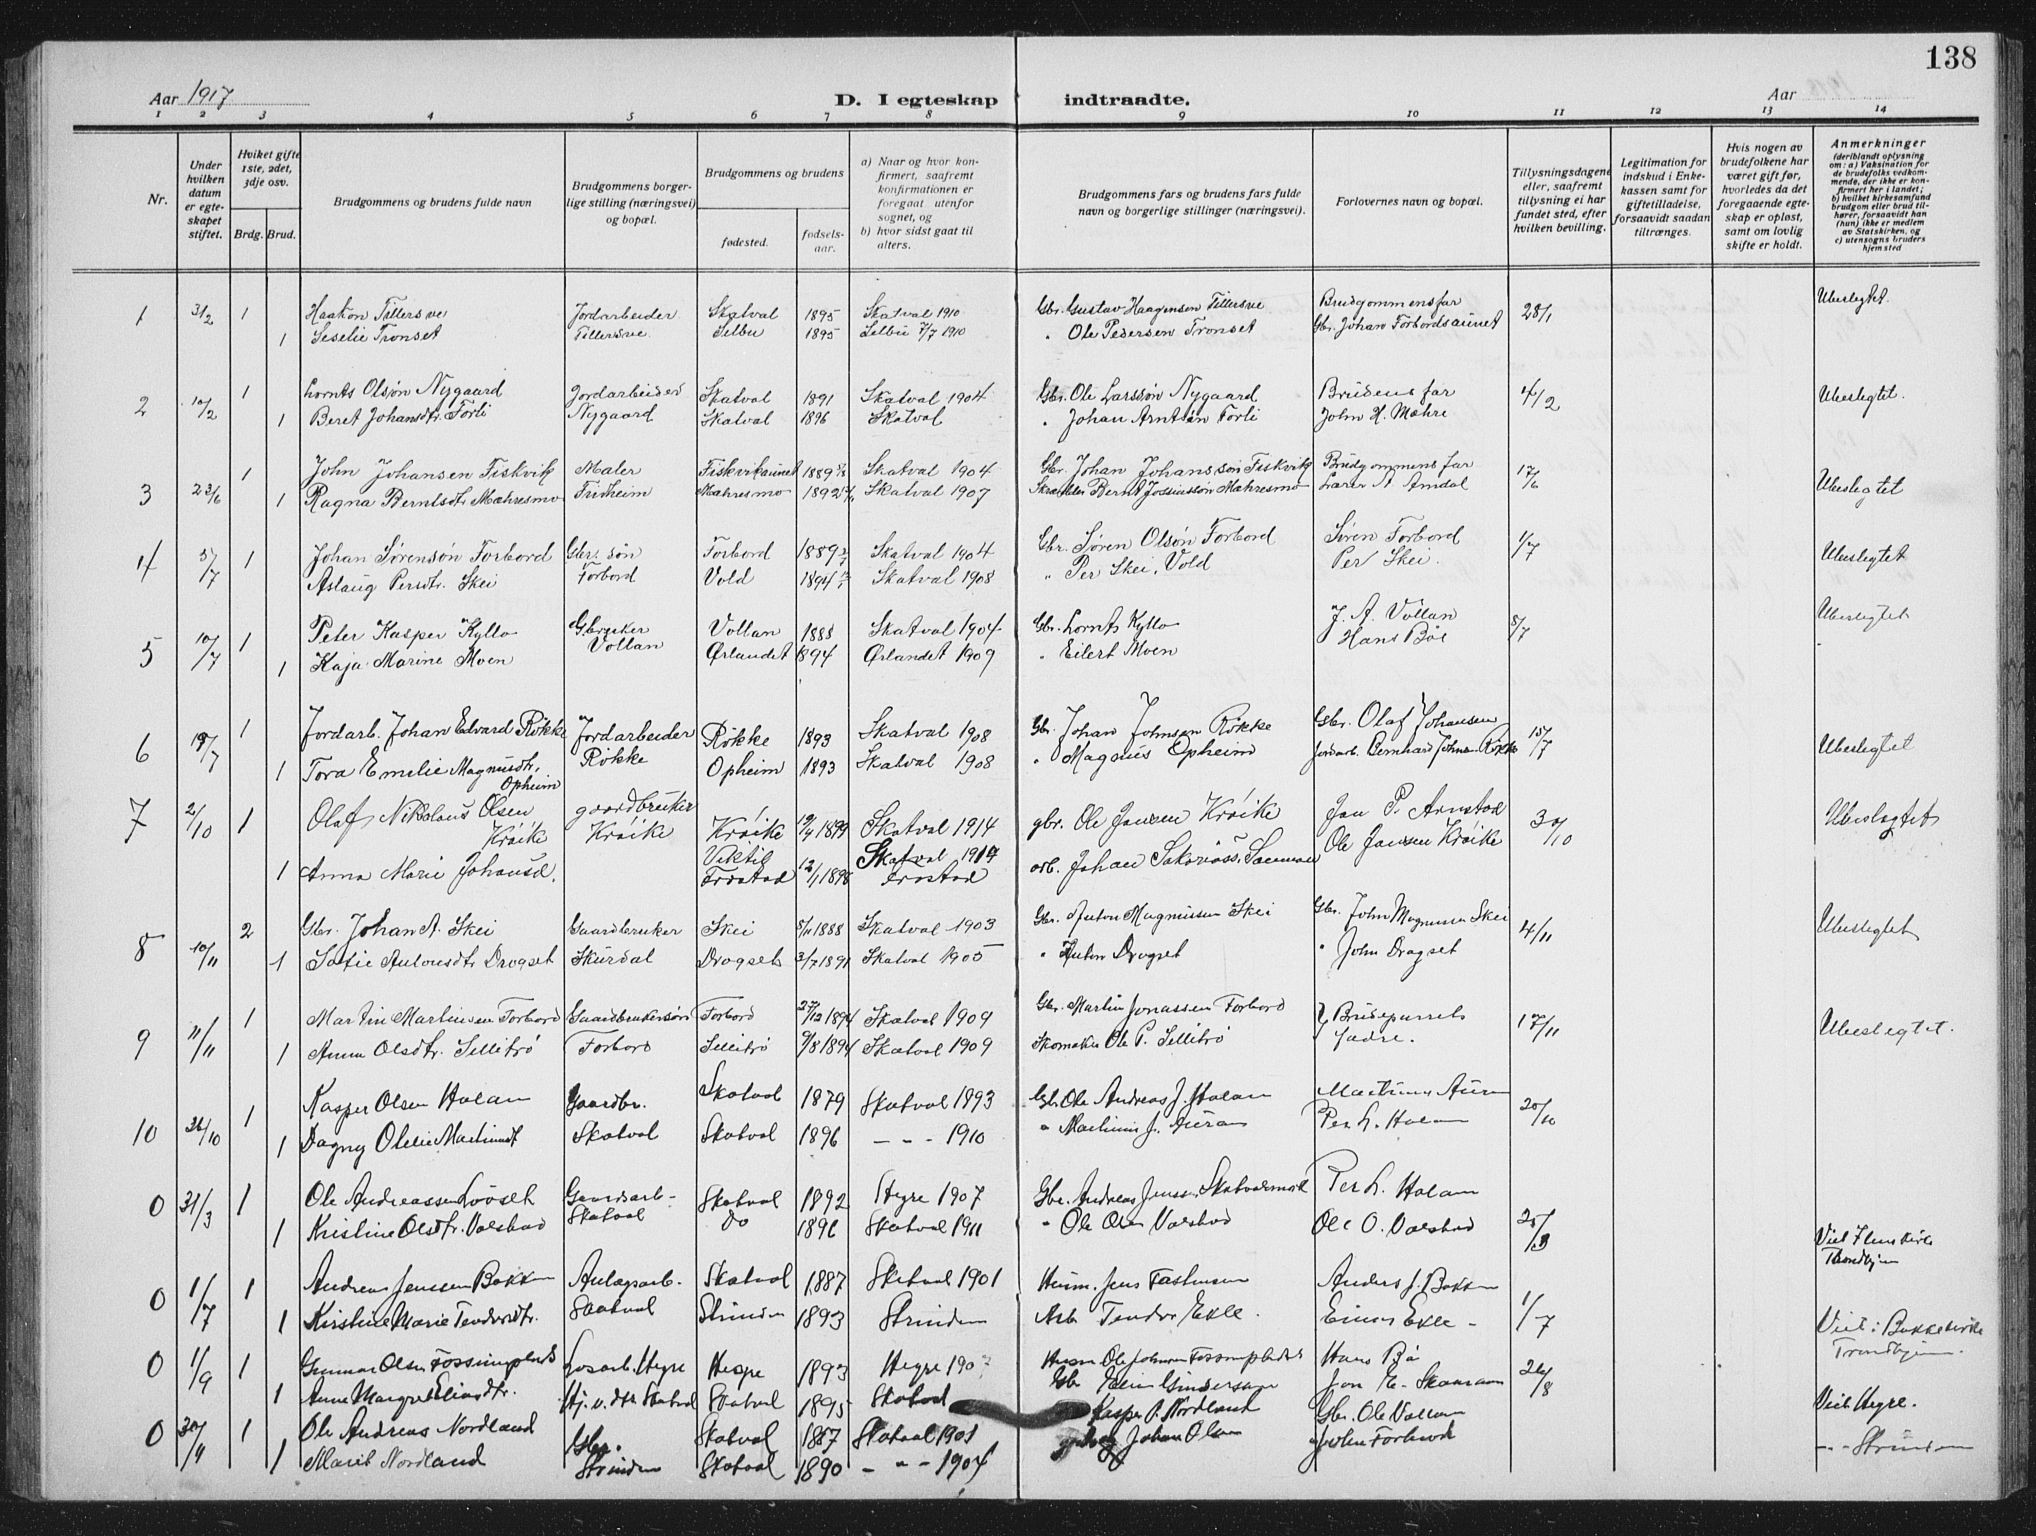 138
Aar 1917
D. I egteskap indtraadte.
Aar
1 2 3 4 5 6 7 8 9 10 11 12 13 14
Nr.
Under hvilken datum er egteskapet stiftet.
Hviket gifte 1ste, 2det, 3dje osv.
Brdg. Brud.
Brudgommens og brudens fulde navn
Brudgommens borgerlige stilling (næringsvei) og bopæl.
Brudgommens og brudens
fødested.
fødselsaar.
a) Naar og hvor konfirmert, saafremt konfirmationen er foregaat utenfor sognet, og
b) hvor sidst gaat til alters.
Brudgommens fars og brudens fars fulde navn og borgerlige stillinger (næringsvei).
Forlovernes navn og bopæl.
Tillysningsdagene eller, saafremt tillysning ei har fundet sted, efter hvilken bevilling.
Legitimation for indskud i Enkekassen samt for giftetilladelse, forsaavidt saadan tiltrænges.
Hvis nogen av brudefolkene har været gift før, hvorledes da det foregaaende egteskap er opløst, samt om lovlig skifte er holdt.
Anmerkninger
(deriblandt oplysning om: a) Vaksination for de brudefolks vedkommende, der ikke er konfirmert her i landet; b) hvilket kirkesamfund brudgom eller brud tilhører, forsaavidt han (hun) ikke er medlem av Statskirken, og c) utensogns bruders hjemsted
1 3/2 1 Haakon Tillersve Jordarbeider Skatval 1895 Skatval 1910 Gbr. Gustav Haagensen Tillersve Brudgommens far 28/1 Ubeslegtet.
1 Seselie Tronset Tillersve. Selbu 1895 Selbu 7/7 1910 " Ole Pedersen Tronset Gbr. Johan Forbordsaunet
2 10/2 1 Lornts Olsøn Nygaard Jordarbeider Skatval 1891 Skatval 1904 Gbr. Ole Larssøn Nygaard Brudens far 4/2 Ubeslegtet.
1 Beret Johansdtr. Forli Nygaard Skatval 1896 Skatval " Johan Arntsøn Forli John H. Mæhre
3 23/6 1 John Johansen Fiskvik Maler Fiskvikaunet 1889 Skatval 1904 Gbr. Johan Johanssøn Fiskvik Brudgommens far 17/6 Ubeslegtet
1 Ragna Berntsdtr. Mæhresmo Trivheim Mæhresmo 1892 Skatval 1907 Skrædder Bernt Mæhresmo Lærer A. Amdal
4 5/7 1 Johan Sørensøn Forbord Gbr. søn Forbord 1889 Skatval 1904 Gbr. Søren Olsøn Forbord Søren Forbord 1/7 Ubeslegtet
Aslaug Persdtr. Skei Forbord Vold 1894 Skatval 1908 " Per Skei, Vold Per Skei.
5 10/7 1 Peter Kasper Kyllo Gbruker Vollan 1888 Skatval 1904 Gbr. Lornts Kyllo J. A. Vollan 8/7 Ubeslegtet
1 Kaja Marine Moen Vollan Ørlandet 1894 Ørlandet 1909 " Eilert Moen Hans Bøe
6 19/7 1 Jordarb. Johan Edvard Røkke Jordarbeider Røkke 1893 Skatval 1908 Gbr. Johan Johnsen Røkke Gbr. Olaf Johansen 15/7 Ubeslegtet
1 Tora Emelie Magnusdtr. Opheim Røkke Opheim 1893 Skatval 1908 " Magnus Opheim Jordarb. Bernhard Johnsen Røkke
7 2/10 1 Olaf Nikolaus Olsen Krøike gaardbruker Krøike Krøike 1894 Skatval 1914 gbr. Ole Jansen Krøike Jon P. Arnstad 30/10 Ubeslegtet
1 Anna Marie Johansd. Viktil Frostad 12/1 1898 Skatval 1914 Frostad arb. Johan Ole Jansen Krøike
8 10/11 2 Gbr. Johan A. Skei Gaardbruker Skei 5/11 1888 Skatval 1903 Gbr. Anton Magnussen Skei Gbr. John Magnussen Skei 4/11 Ubeslegtet
1 Sofie Antonsdtr Drogset Skurdal Drogset 3/7 1891 Skatval 1905 " Anton Drogset " John Drogset
9 11/11 1 Martin Martinsen Forbord Gaardbrukersøn Forbord 27/12 1894 Skatval 1909 Gbr. Martin Jonassen Forbord Brudeparrets 17/11 Ubeslegtet.
1 Anna Olsdtr. Sellitrø Forbord Sellitrø 9/8 1894 Skatval 1909 Skomaker Ole P. Sellitrø fædre.
10 26/10 1 Kasper Olsen Holan Gaardbr. Skatval 1879 Skatval 1893 Gbr. Ole Andreas J. Holan Martinus Auran 20/10
1 Dagny Olelie Martinusdt Skatval Skatval 1896 - " - 1910 " Martinus J. Auran Per L. Holan
0 31/3 1 Ole Andreassen Loöset Gaardarb. Skatval 1892 Hegre 1907 Gbr. Andreas Jenssen Skatvalsmoe Per L. Holan 25/3 Viet Ilens kirke Trondhjem
1 Kristine Olsdtr. Valstad Skatval Do 1896 Skatval 1911 " Ole Olsen Valstad Ole O. Valstad
0 1/7 1 Andreas Jenssen Bakken Anlægsarb. Skatval 1887 Skatval 1901 Husm. Jens Fastensen Anders J. Bakken 1/7 Viet i Bakkekirke Trondhjem.
1 Kirstine Marie Teodorsdtr. Skatval Strinden 1893 Strinden Arb. Teodor Ekle. Einar Ekle -
0 1/9 1 Gunnar Olsen Fossumplads Løsarb. Hegre Hegre 1893 Hegre 190 Husm Ole Johnsen Fossumplads Hans Bø 26/8 Viet Hegre.
1 Anne Margret Eliasdtr. Hj. v. dtr. Skatval Skatval 1895 Skatval Gbr Elias Gundersen Jon E. Skaanan
0 30/11 1 Ole Andreas Nordland Gbr. Skatval 1887 Skatval 1901 Kasper P. Nordland Gbr. Ole Vollan - " - Strinden
1 Marit Nordland Strinden Skatval 1890 - " - 1904 Johan Olsen John Forbord